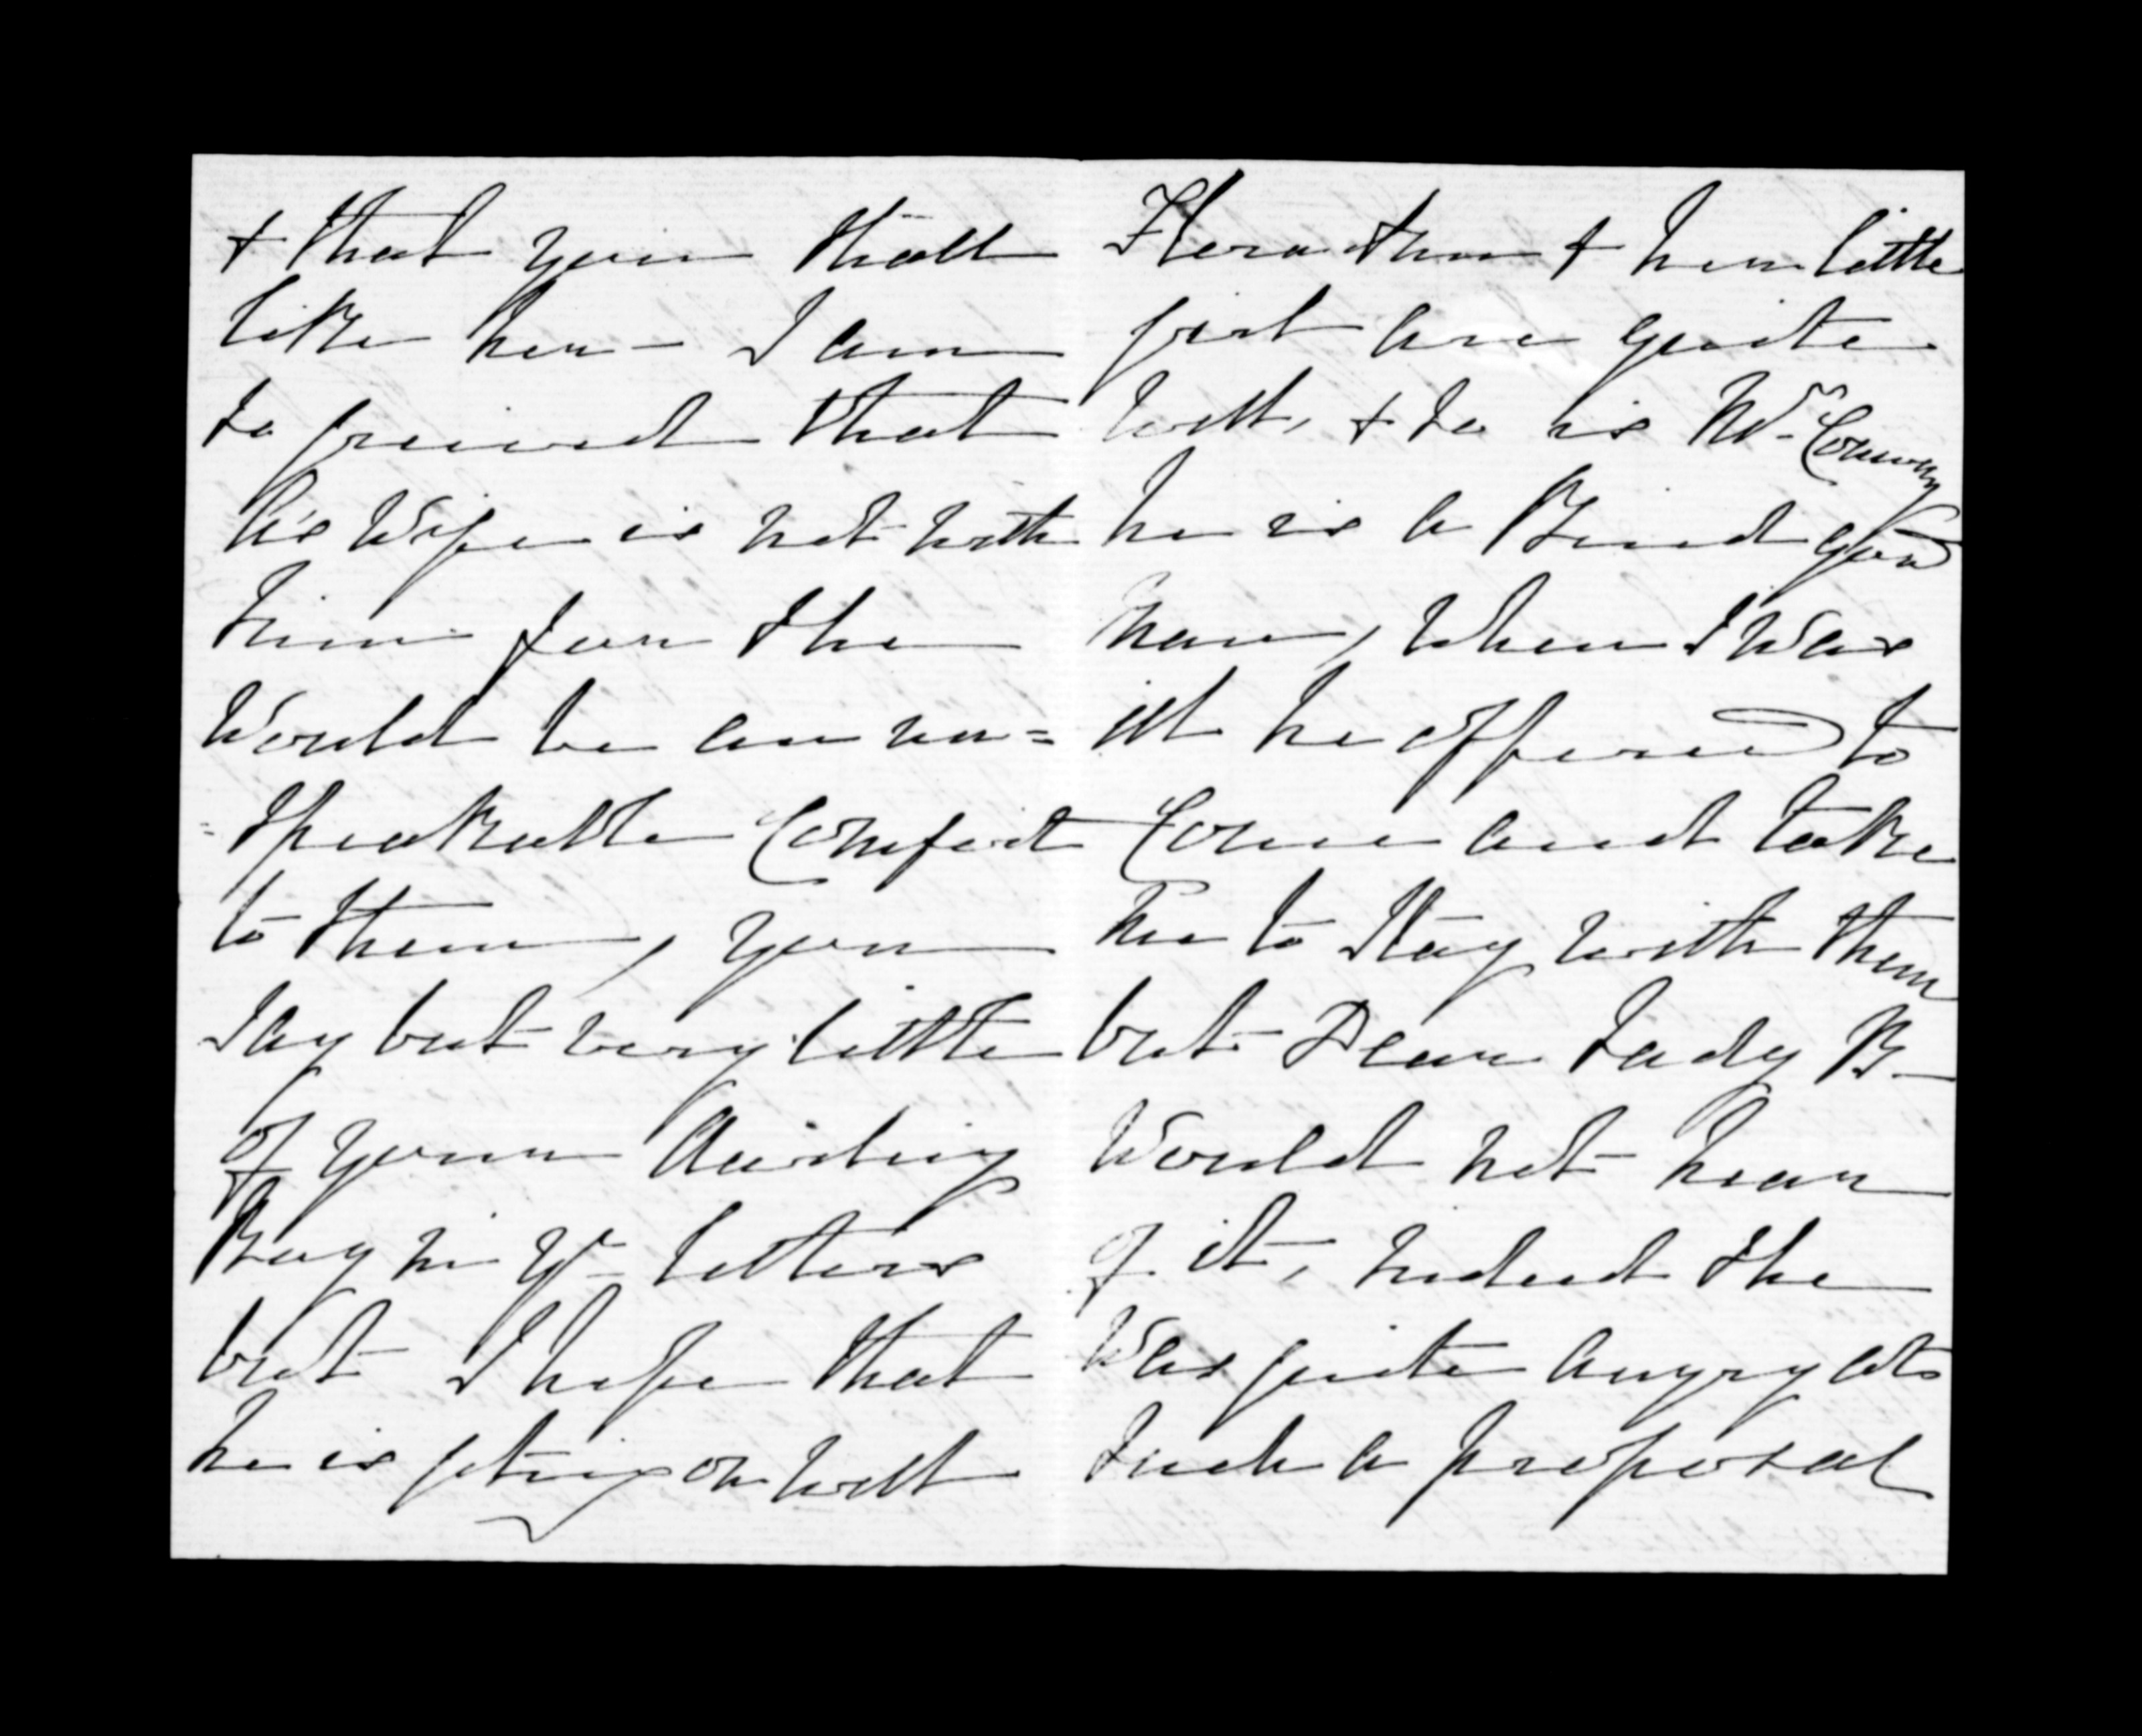 & that you shall
like her - I am
so grieved that
his Wife is not with
him for she
Would be an un=
=speakable Comfort
to them, you
say but very little
of your darling
Boy in yr letters
but I hope that
he is getting on well
& her little
girl are quite
well, & so is Mr. Conway
he is a Kind good
man, When I Was
ill he offered to
Come and take
me to Stay with them
but Dear Lady B-
Would not hear
of it, indeed she
Was quite angry at
such a proposal